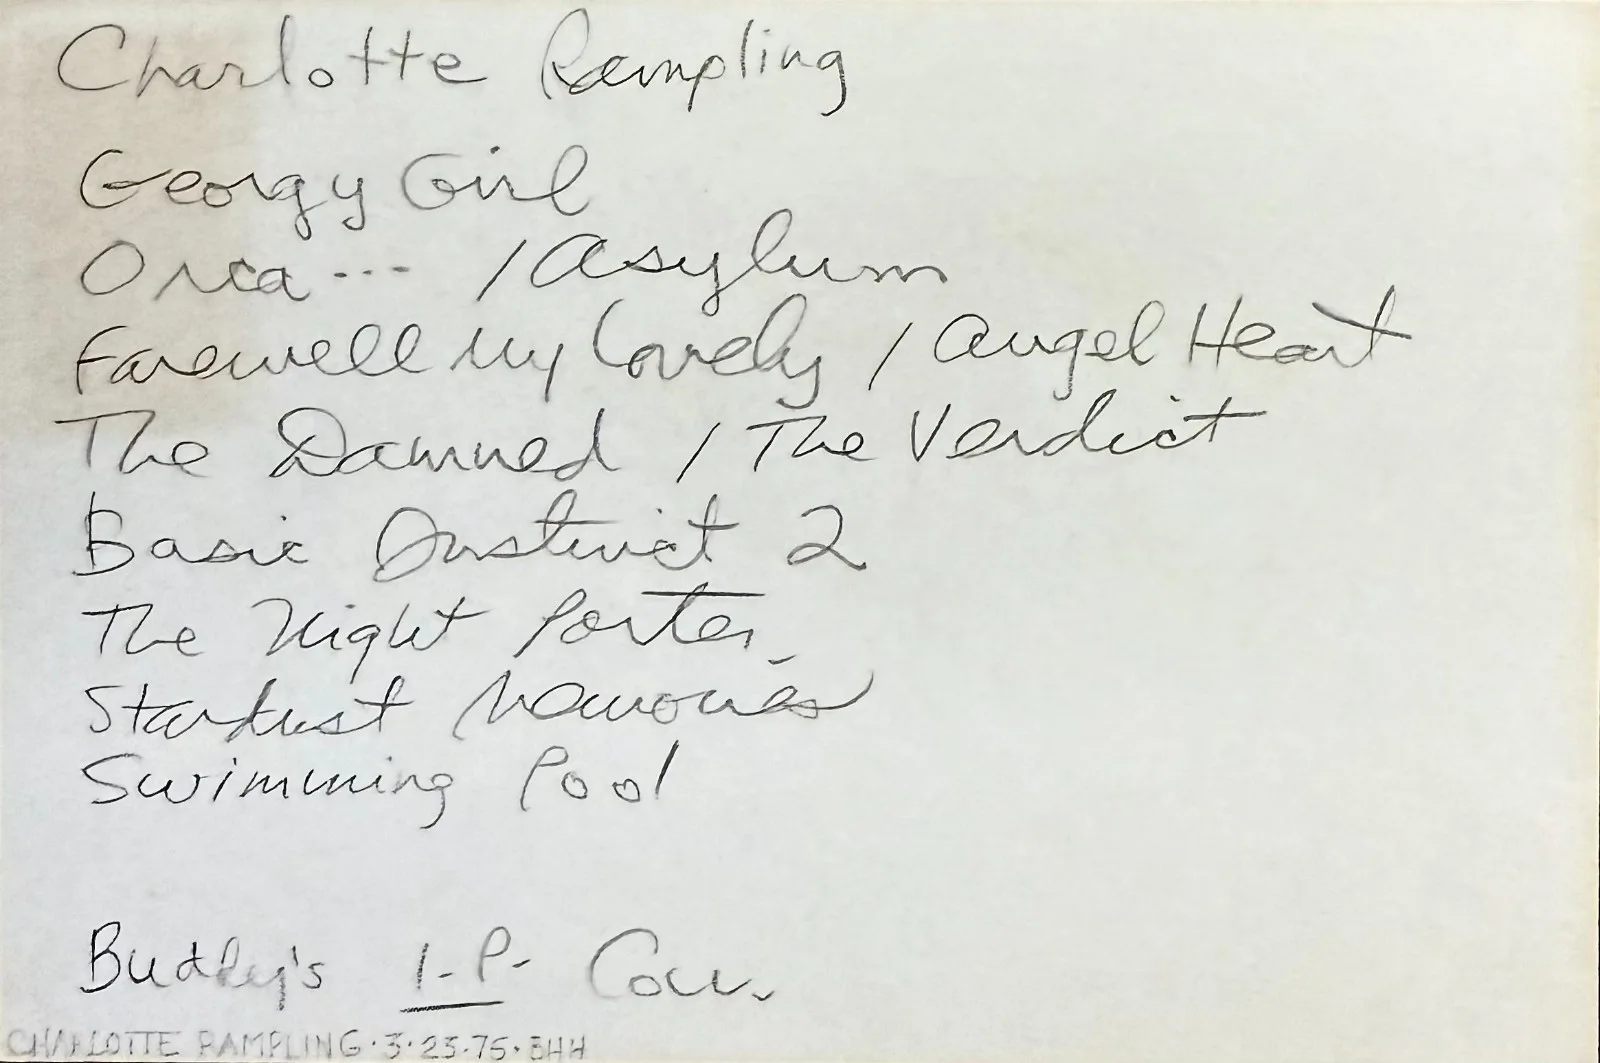 Charlotte Rampling
Georgy Girl
Orca --- / Asylum
Farewell My Lovely / Angel Heart
The Damned / The Verdict
Basic Instinct 2
The Night Porter
Stardust Memories
Swimming Pool
1-P-
CHARLOTTE RAMPLING · 3 · 23 · 75 · BHH